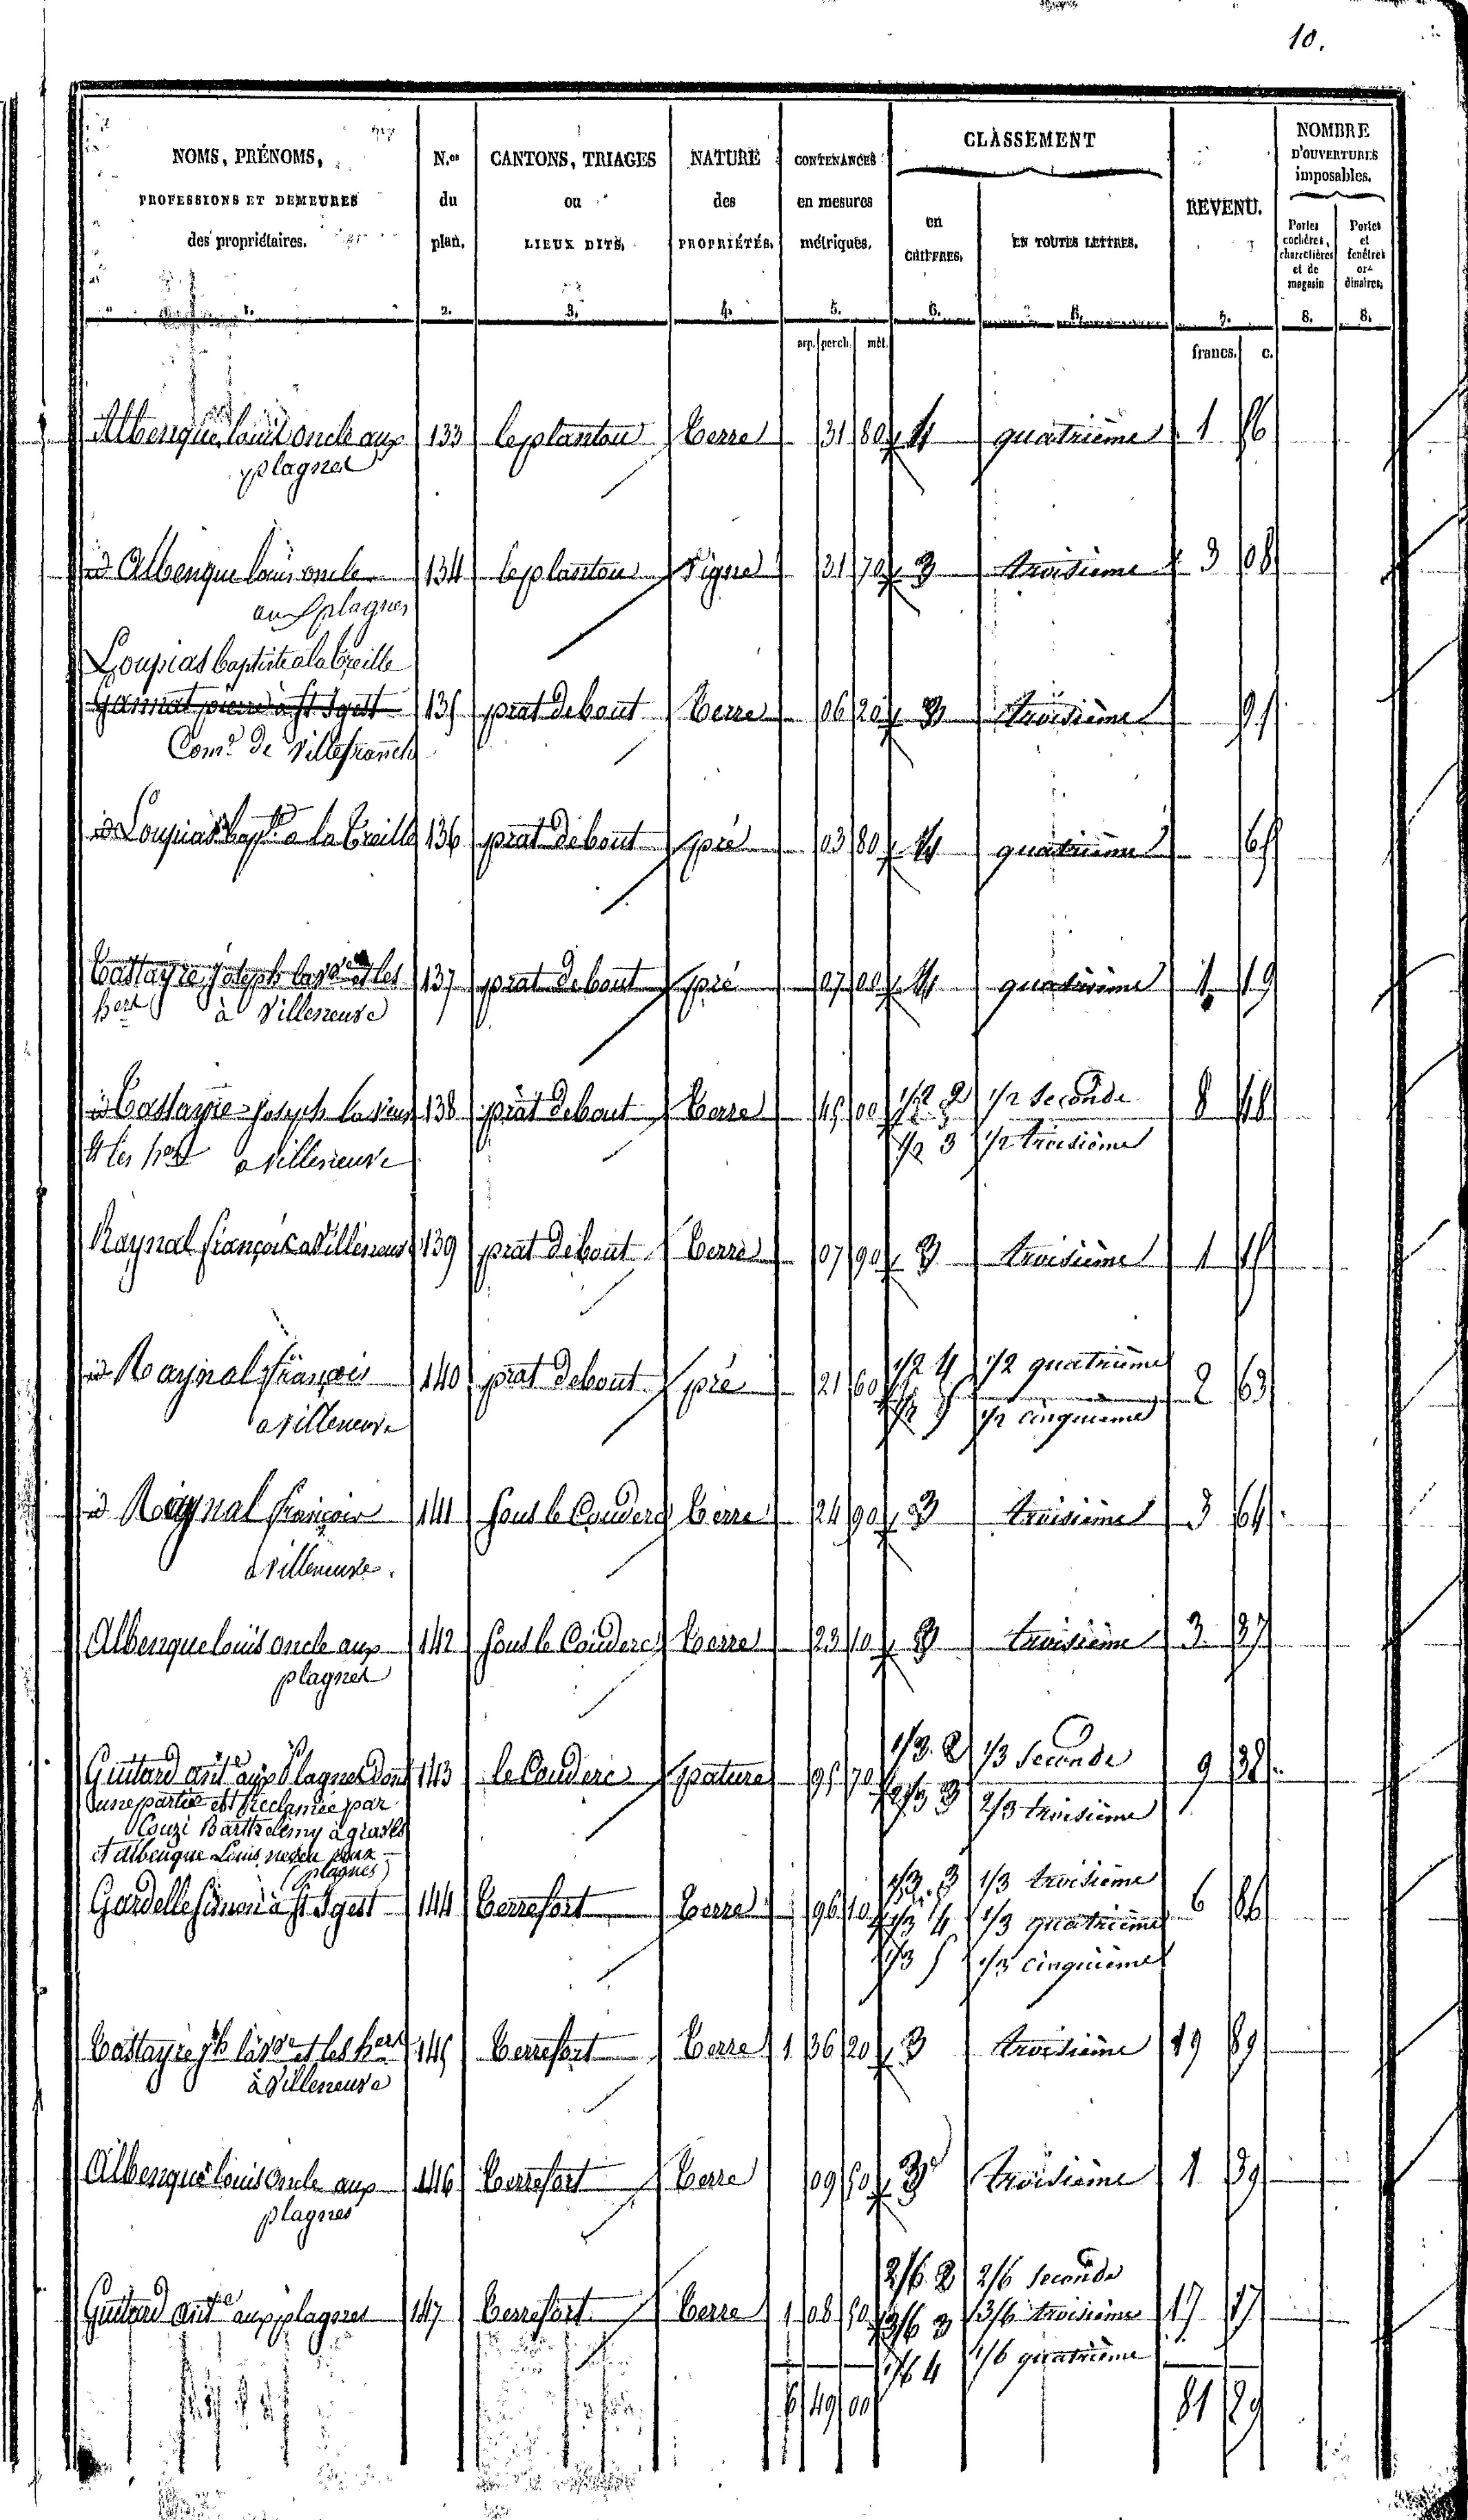 10.
NOMS, PRÉNOMS,
PROFESSIONS ET DEMEURES
des propriétaires.
1.
N.os
du
plan.
2.
CANTONS, TRIAGES
ou
LIEUX DITS.
3.
NATURE
des
PROPRIÉTÉS.
4.
CONTENANCES
en mesures
métriques.
5.
arp. perch. mèt.
CLASSEMENT
en
CHIFFRES.
6.
EN TOUTES LETTRES.
6.
REVENU.
7.
francs. c.
NOMBRE
D'OUVERTURES
imposables.
Portes
cochères,
charretières
et de
magasin
8.
Portes
et
fenêtres
or-
dinaires.
8.
Albenque louis oncle aux 133 leplantou terre 31 80 4 quatrième 1 86
plagnes
id Albenque louis oncle 134 leplantou Vigne 31 70 3 troisième 3 08
aux plagnes
Loupias baptiste à la treille
Gannat pierre à st Igest 135 prat debout terre 06 20 3 troisième 91
Com.e de Villefranche
id Loupias bapt.te a la treille 136 prat debout pré 03 80 4 quatrième 65
Castayre joseph la v.e et les 137 prat debout pré 07 00 4 quatrième 1 19
hers à Villeneuve
id Castayre joseph la veuve 138 prat debout terre 45 00 1/2 2 1/2 seconde 8 48
et les hers a villeneuve 1/2 3 1/2 troisième
Raynal françois a Villeneuve 139 prat debout terre 07 90 3 troisième 1 15
id Raynal françois 140 prat debout pré 21 60 1/2 4 1/2 quatrième 2 63
a villeneuve 1/2 5 1/2 cinquieme
id Raynal françois 141 sous le Couderc terre 24 90 3 troisième 3 64
a villeneuve.
Albenque louis oncle aux 142 sous le Couderc terre 23 10 3 troisième 3 37
plagnes
Guitard ant.e aux Plagnes dont 143 le Couderc pature 95 70 1/3 2 1/3 seconde 9 38
une partie est réclamée par 2/3 3 2/3 troisième
Couzi Barthelemy à
et Albenque Louis neveu aux
(plagnes) 1/3 3 1/3 troisième
Gardelle simon à st Igest 144 terrefort terre 96 10 1/3 4 1/3 quatrième 6 86
1/3 5 1/3 cinquième
Castayre jh la v.e et les hers 145 terrefort terre 1 36 20 3 troisième 19 89
à Villeneuve
Albenque louis oncle aux 146 terrefort terre 09 50 3 troisième 1 39
plagnes
2/6 2 2/6 seconde
Guitard ant.e aux plagnes 147 terrefort terre 1 08 50 3/6 3 3/6 troisième 17 17
1/6 4 1/6 quatrième
6 49 00 81 29